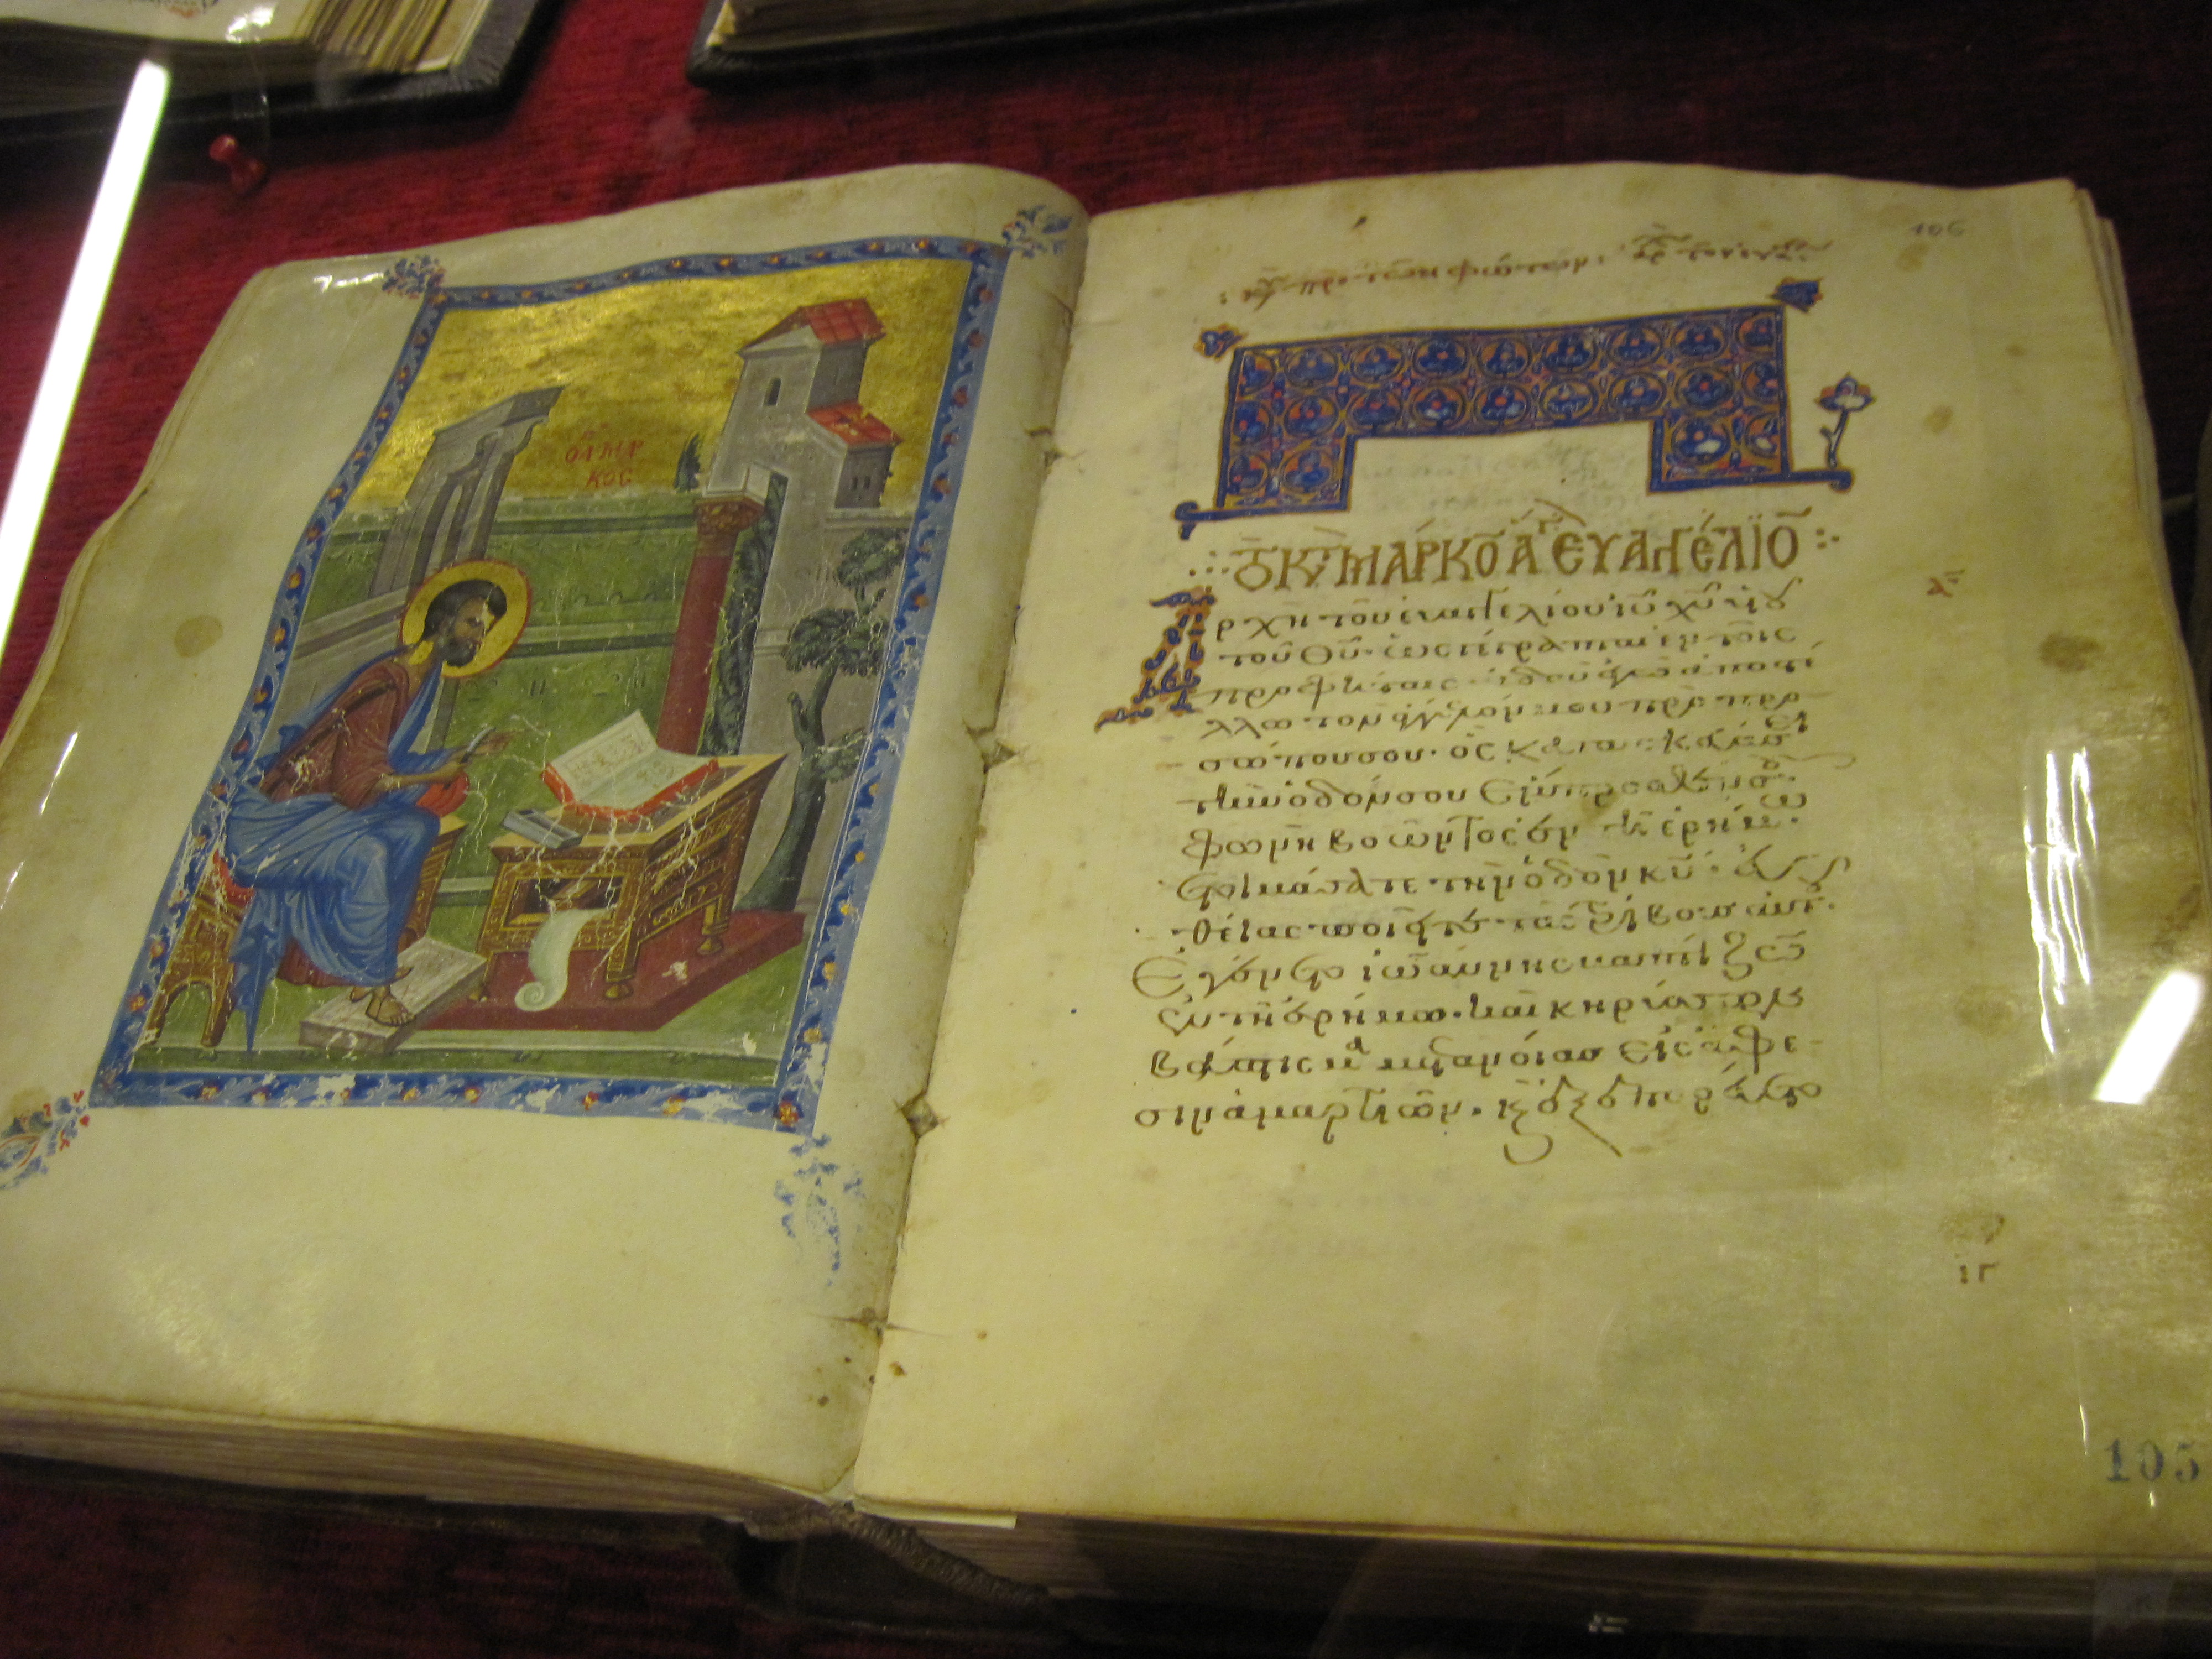 Ο Α ΜΑΡ
ΚΟC
106
πρὸ τῶν φώτων
ΕΚ ΤΟΥ ΚΑΤᾺ ΜΆΡΚΟΝ ἉΓΊΟΥ ΕΥΑΓΓΕΛΊΟΥ
Ἀρχὴ τοῦ εὐαγγελίου ιῦ χῦ υἱοῦ
τοῦ θῦ· ὡς γέγραπται ἐν τοῖς
προφήταις· ἰδοὺ ἐγὼ ἀποστέ
λλω τὸν ἄγγελόν μου πρὸ προ
σώπου σου· ὃς κατασκευάσει
τὴν ὁδόν σου ἔμπροσθέν σου·
φωνὴ βοῶντος ἐν τῇ ἐρήμω·
ἑτοιμάσατε τὴν ὁδὸν κῦ· εὐ
θείας ποιεῖτε τὰς τρίβους αὐτοῦ·
Ἐγένετο ἰωάννης βαπτίζων
ἐν τῇ ἐρήμω· καὶ κηρύσσων
βάπτισμα μετανοίας εἰς ἄφε
σιν ἁμαρτιῶν· καὶ ἐξεπορεύετο
105